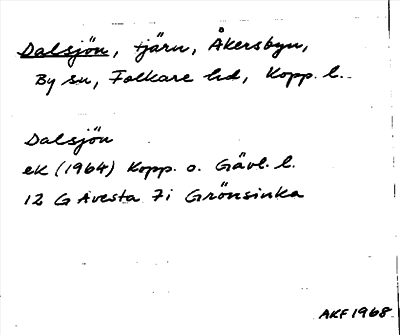 Dalsjön, tjärn, Åkersbyn,
By sn, Folkare hd, Kopp. l.
Dalsjön
ek (1964) Kopp. o. Gävl. l.
12 G Avesta 7i Grönsinka
AKF 1968